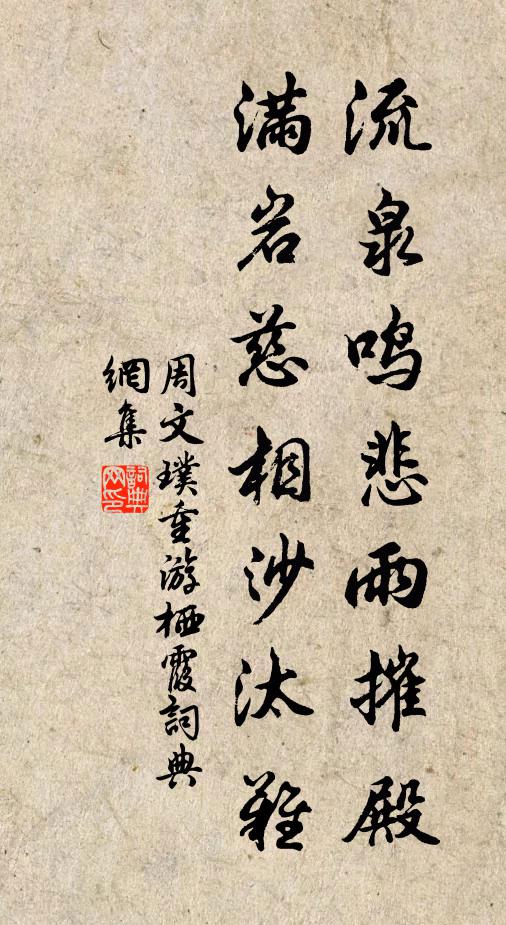 流泉鸣悲雨摧殿
满岩慈相沙汰难
周文璞重游栖霞詞典
網集
詞典网印